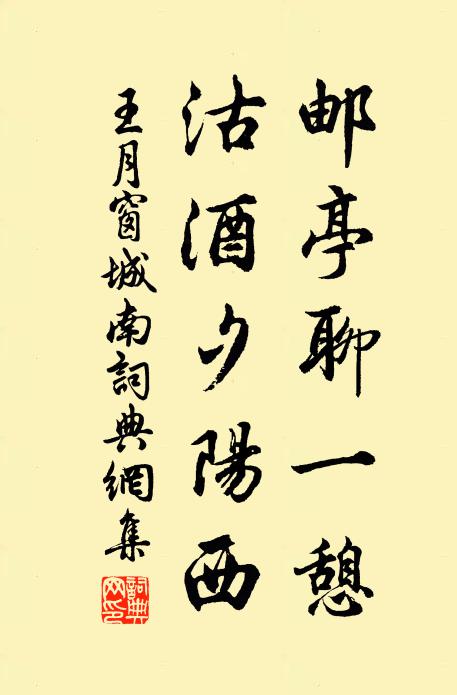 邮亭聊一憩
沽酒夕陽西
王月窗城南詞典網集
詞典网印